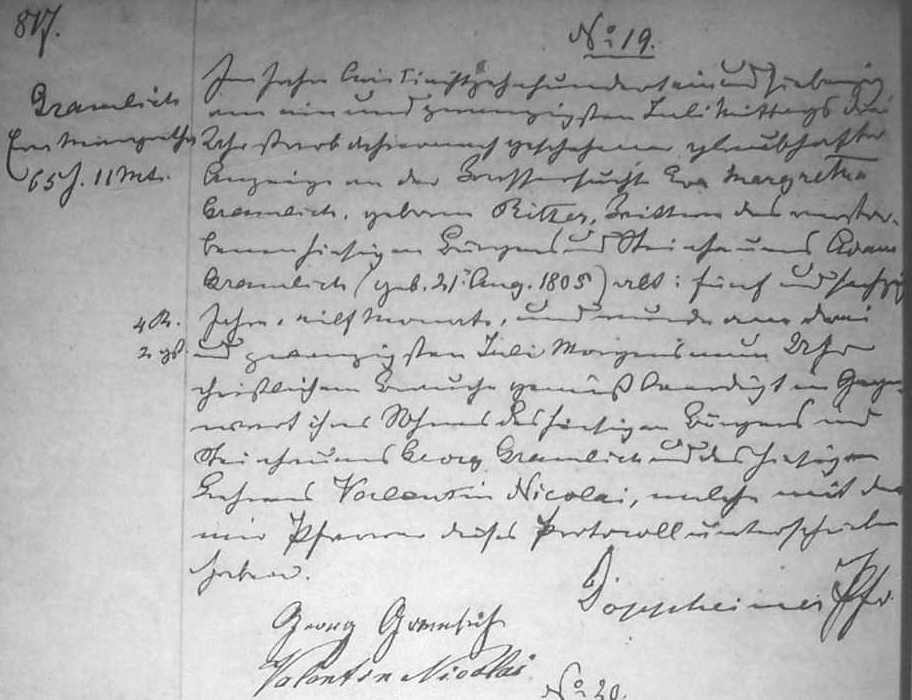 87.
No 19.
Gramlich
Eva Margretha
65 J. 11 Mt.
Im Jahre Christi achtzehnhundert ein und siebenzig
am ein und zwanzigsten Juli Mittags drei
Uhr starb dahier nach geschehener glaubhafter
Anzeige an der Eva Margretha
Gramlich, geborene Ritter, Wittwe des verstor-
benen hiesigen Bürgers und Steinhauers Adam
Gramlich (geb. 21. Aug. 1805) alt: fünf und sechzig
Jahre, eilf Monate, und wurde am drei
und zwanzigsten Juli Morgens neun Uhr
christlichem Brauche gemäß beerdigt in Gegen-
wart ihres Sohnes des hiesigen Bürgers und
Steinhauers Georg Gramlich und des hiesigen
Lehrers Valentin Nicolai, welche mit
mir Pfarrer dieses Protocoll unterschrieben
haben.
Pfr.
Georg Gramlich
Valentin Nicolai
No 20.